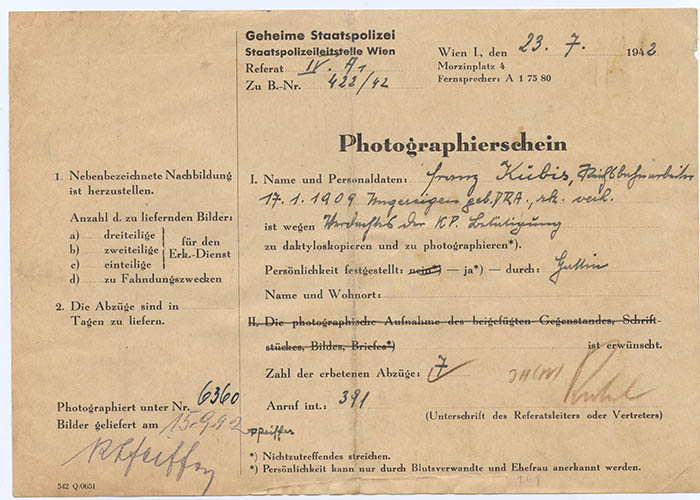 Geheime Staatspolizei
Staatspolizeileitstelle Wien
Referat IV. A1
Zu B.-Nr. 422/42
Wien I., den 23. 7. 1942
Morzinplatz 4
Fernsprecher: A 1 75 80
Photographierschein
1. Nebenbezeichnete Nachbildung
ist herzustellen.
Anzahl d. zu liefernden Bilder:
a) dreiteilige
b) zweiteilige
c) einteilige
für den
Erk.-Dienst
d) zu Fahndungszwecken
2. Die Abzüge sind in
Tagen zu liefern.
Photographiert unter Nr. 6360
Bilder geliefert am 15.9.42
542 Q/0651
I. Name und Personaldaten: Franz Kubis, Reichsbahnarbeiter
17. 1. 1909 geb., DRA., rk. verh.
ist wegen Verdachtes der KP. Betätigung
zu daktyloskopieren und zu photographieren*).
Persönlichkeit festgestellt: nein*) — ja*) — durch: Gattin
Name und Wohnort:
II. Die photographische Aufnahme des beigefügten Gegenstandes, Schrift-
stückes, Bildes, Briefes*) ist erwünscht.
Zahl der erbetenen Abzüge: 7
Anruf int.: 391
(Unterschrift des Referatsleiters oder Vertreters)
Pfeiffer
*) Nichtzutreffendes streichen.
*) Persönlichkeit kann nur durch Blutsverwandte und Ehefrau anerkannt werden.